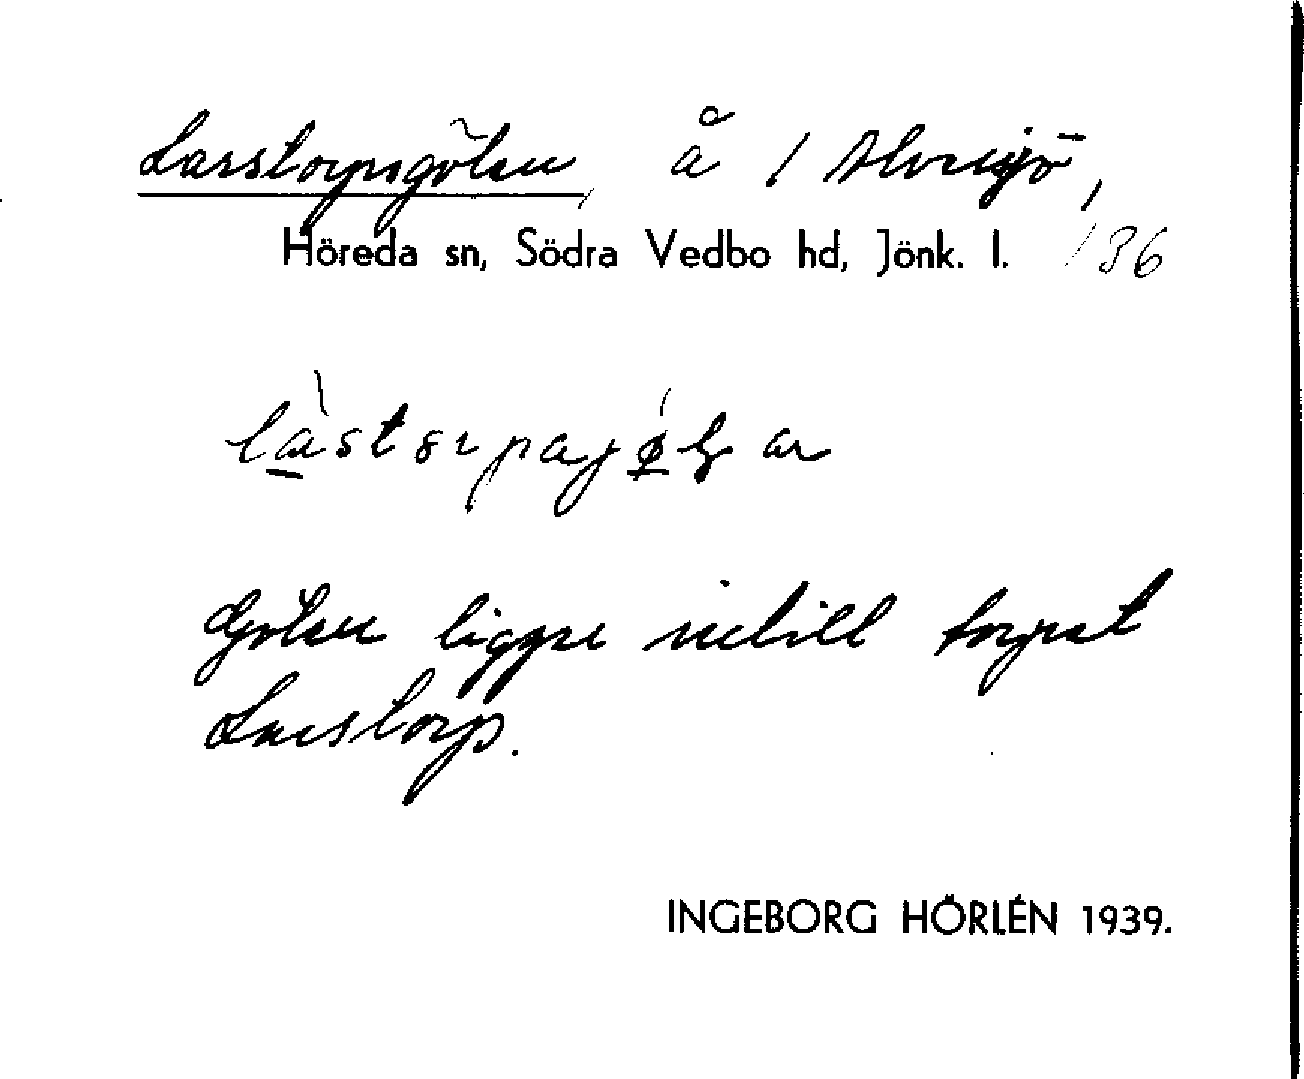 Lasstorpsgölen, å 1 Alvesjö,
Höreda sn, Södra Vedbo hd, Jönk. l. 136
Gölen ligger intill torpet
Lasstorp.
INGEBORG HÖRLÉN 1939.